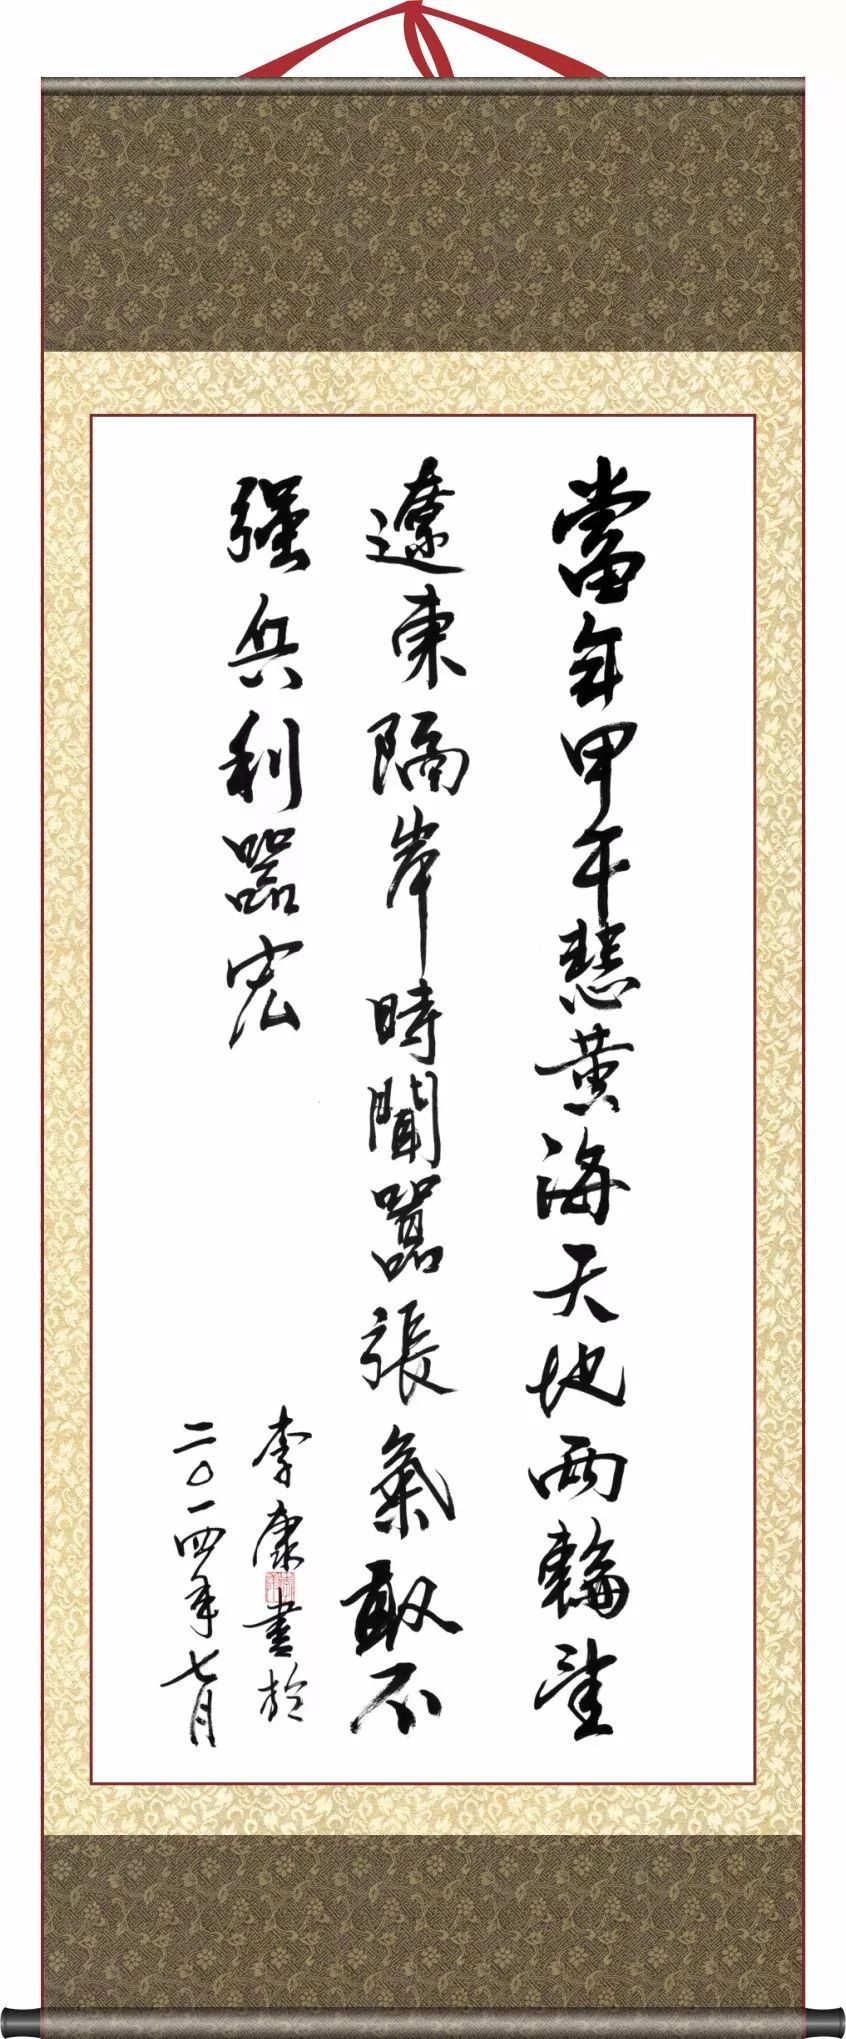 當年甲午悲黄海天地两輪望
遼東隔岸時聞囂張氣敢不
强兵利器宏
李康書於
二〇一四年七月